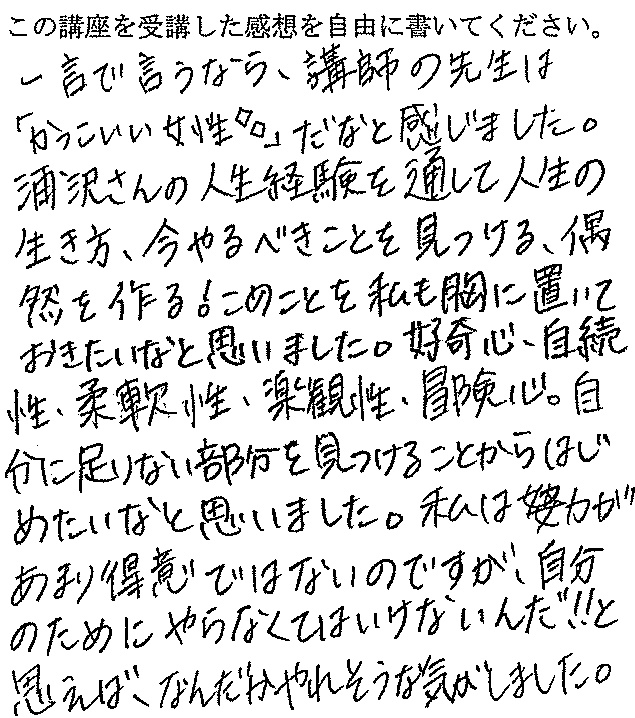 この講座を受講した感想を自由に書いてください。
一言で言うなら、講師の先生は
「かっこいい女性◇◇」だなと感じました。
浦沢さんの人生経験を通して人生の
生き方、今やるべきことを見つける、偶
然を作る!このことを私も胸に置いて
おきたいなと思いました。好奇心、自続
性、柔軟性、楽観性、冒険心。自
分に足りない部分を見つけることからはじ
めたいなと思いました。私は努力が
あまり得意ではないのですが、自分
のためにやらなくてはいけないんだ!!と
思えば、なんだかやれそうな気がしました。